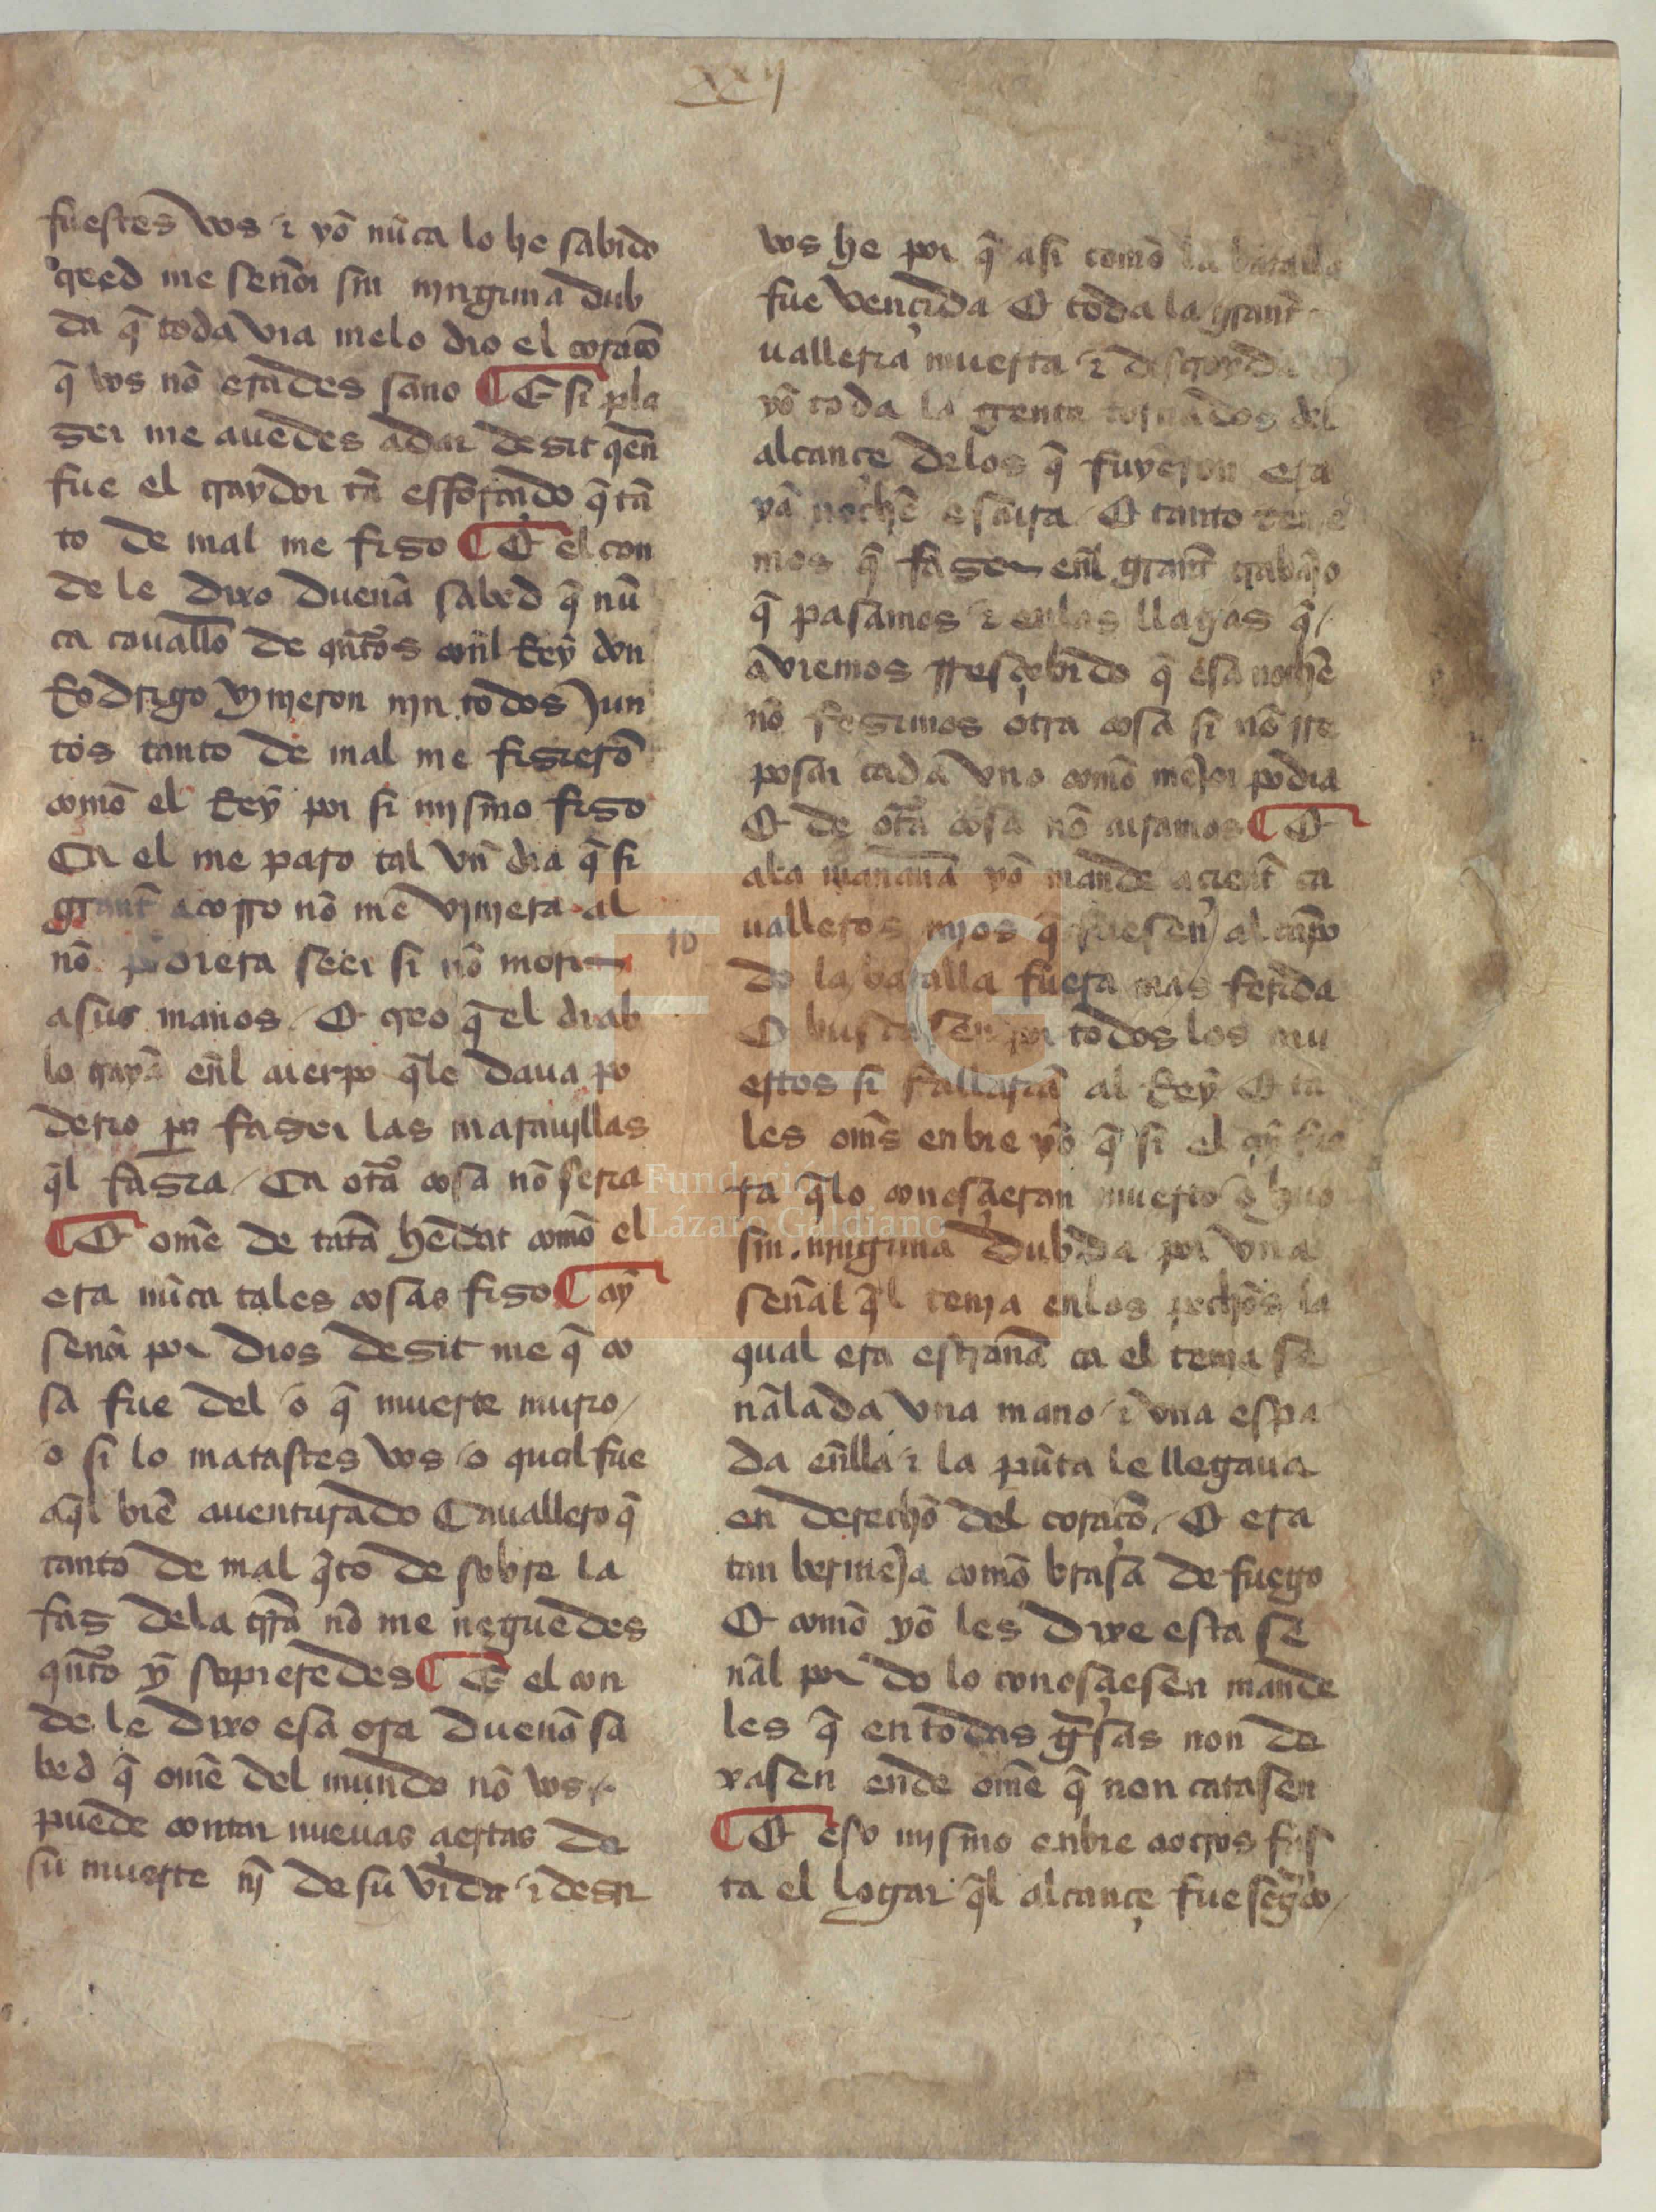 xxij
fuestes vos ⁊ yo nũca lo he sabido
creed me señor sin njnguna dub
da q̃ toda via melo dio el coraçõ
q̃ vos nõ erades sano ¶ E si pla
zer me auedes adar dezit quẽ
fue el traydor tã efforçado q̃ tã
to de mal me fizo ¶ E el con
de le dixo dueña sabed q̃ nũ
ca cauallo de q̃ntos conl Rey don
Rodrigo vjnjeron njn todos jun
tos tanto de mal me fizierõ
comõ el Rey por si mjsmo fizo
Ca el me paro tal vñ dia q̃ si
grant acorro nõ me vjnjera al
nõ podiera seer si nõ morir
asus manos E creo q̃ el diab
lo traya enl cuerpo q̃le daua po
derio pa fazer las marauillas
q̃l fazia Ca otra cosa nõ seria
¶ E ome de tãta hedat comõ el
era nũca tales cosas fizo ¶ ay
señor por dios dezit me q̃ co
sa fue del o q̃ muerte murio
o si lo matastes vos o qual fue
aq̃l biẽ auenturado Cauallero q̃
tanto de mal q̃to de sobre la
faz dela trra nõ me neguedes
q̃nto y sopieredes ¶ E el con
de le dixo esa ora dueña sa
bed q̃ ome del mundo nõ vos
puede contar nueuas çiertas de
su muerte nj de su vida ⁊ dezir
vos he por q̃ asi comõ la batalla
fue vençida E toda la grant
ualleria muerta ⁊ destroyda
yo toda la gente tornados del
alcançe delos q̃ fuyeron era
ya noche escura E tanto
mos q̃ fazer enl grant trabajo
q̃ pasamos ⁊ enlas llagas q̃
aviemos rresçebido q̃ esa noche
nõ fezimos otra cosa si nõ rre
posar cada vno comõ mejor podia
E de otra cosa nõ curamos ¶ E
ala mañana yo mande açient ca
ualleros mjos q̃ fuesen al cãpo
do la batalla fuera mas ferida
E buscasen por todos los mu
ertos si fallarian al Rey E ta
les oms enbie yo q̃ si el
ra q̃lo conosçieran muerto o biuo
sin njnguna dubda por vña
señal q̃l tenja enlos pechos la
qual era estraña ca el tenja se
ñalada vna mano ⁊ vna espa
da enlla ⁊ la pũta le llegaua
en derecho del coraçõ E era
tan bermeja comõ brasa de fuego
E comõ yo les dixe esta se
ñal por do lo conosçiesen mande
les q̃ en todas guisas non de
xasen ende ome q̃ non catasen
¶ E eso mjsmo enbie aotros fas
ta el logar q̃l alcançe fue segido
10
FLG
Fundación
Lázaro Galdiano